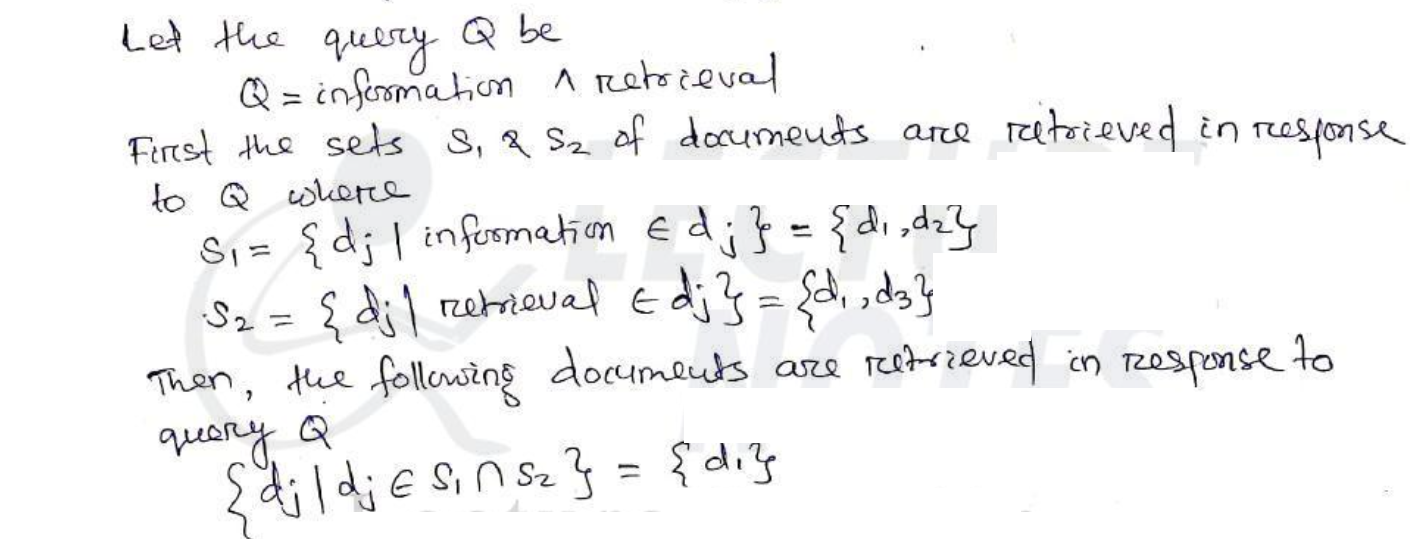 Let the query Q be
Q = information ∧ retrieval
First the sets S₁ & S₂ of documents are retrieved in response
to Q where
S₁ = {dj | information ∈ dj} = {d₁, d₂}
S₂ = {dj | retrieval ∈ dj} = {d₁, d₃}
Then, the following documents are retrieved in response to
query Q
{dj | dj ∈ S₁ ∩ S₂} = {d₁}